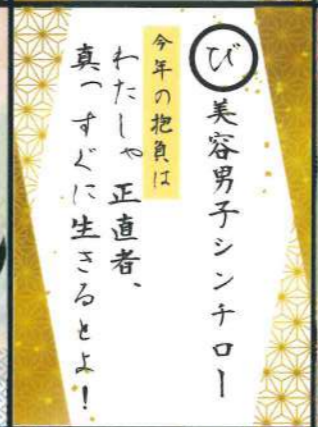 び 美容男子シンチロー
今年の抱負は
わたしゃ正直者、
真っすぐに生きるとよ!